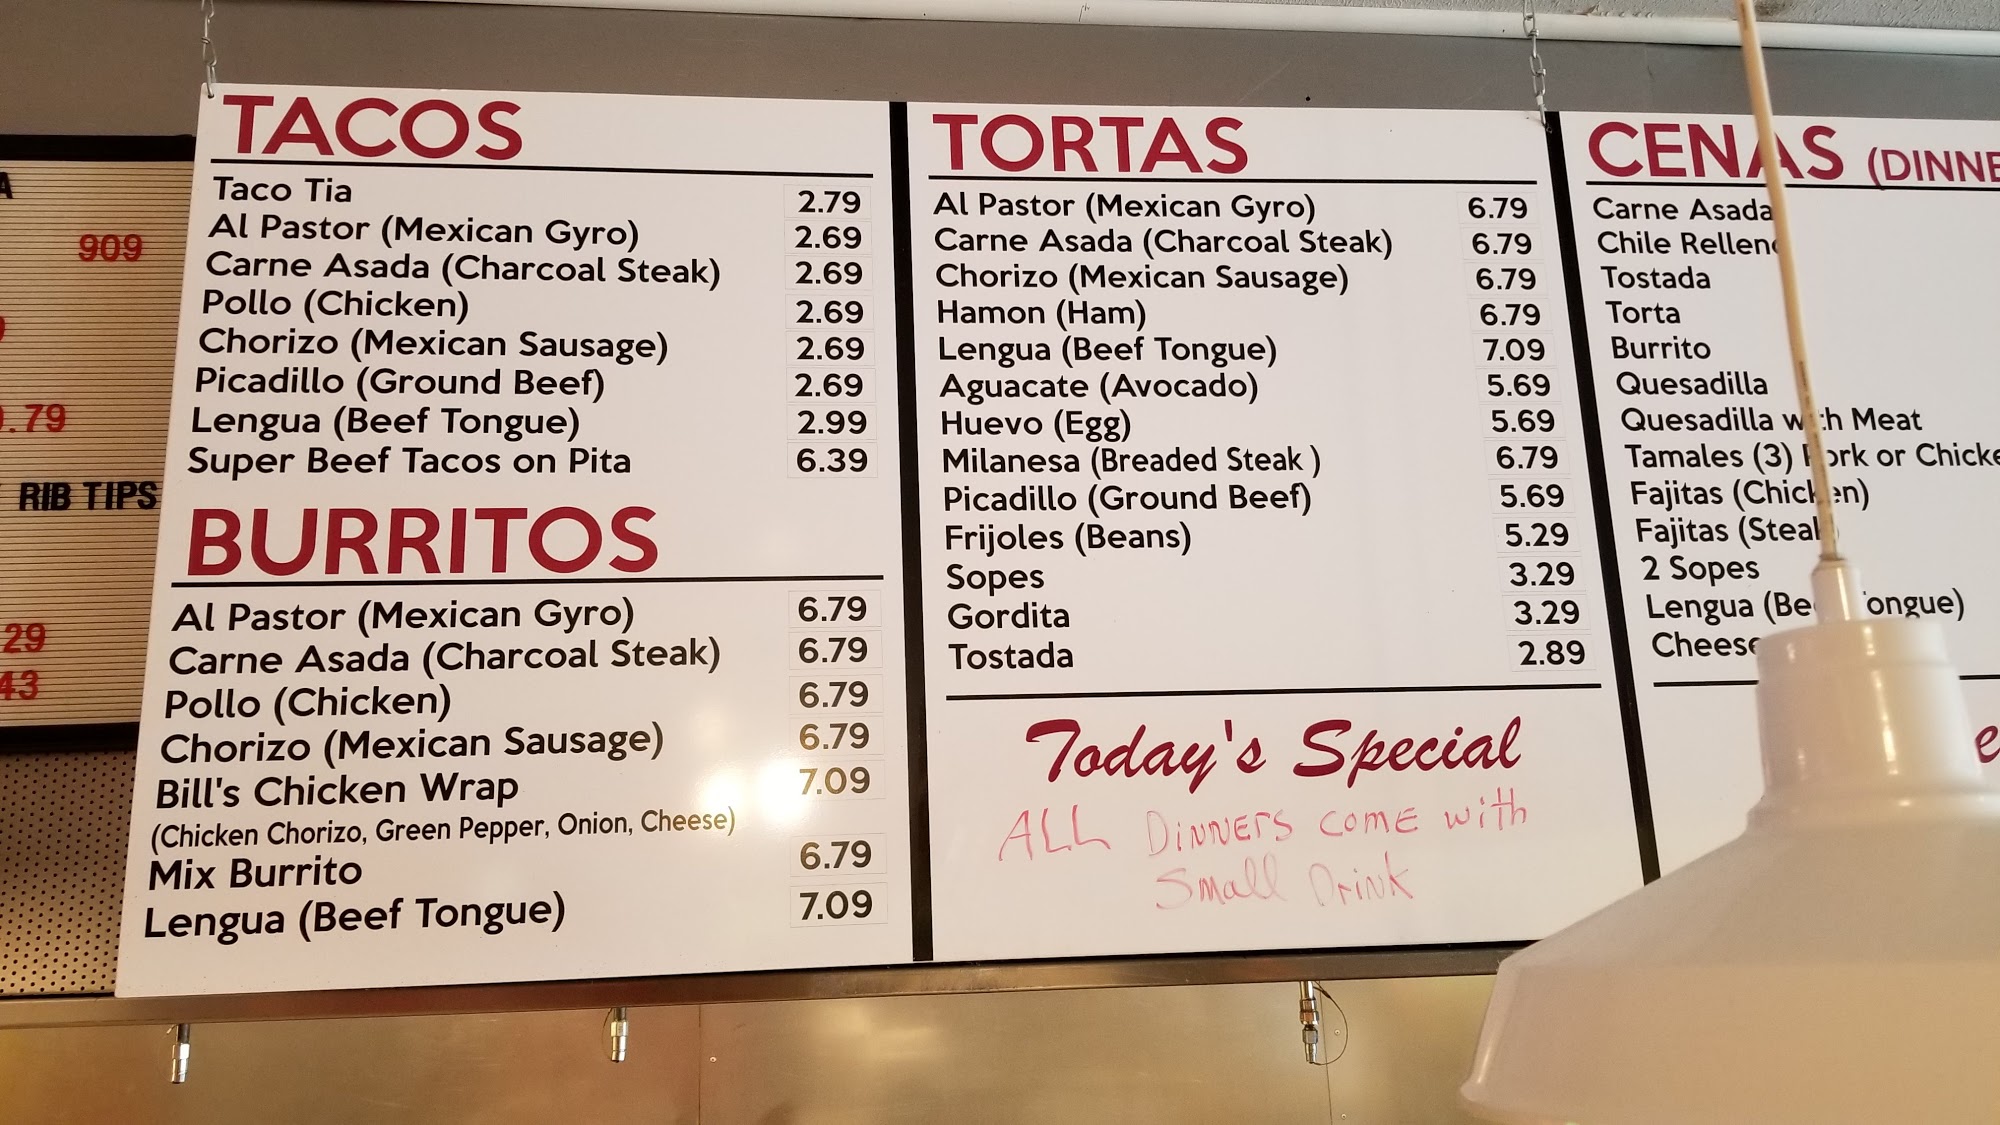 A
909
.79
RIB TIPS
29
43
TACOS
Taco Tia 2.79
Al Pastor (Mexican Gyro) 2.69
Carne Asada (Charcoal Steak) 2.69
Pollo (Chicken) 2.69
Chorizo (Mexican Sausage) 2.69
Picadillo (Ground Beef) 2.69
Lengua (Beef Tongue) 2.99
Super Beef Tacos on Pita 6.39
BURRITOS
Al Pastor (Mexican Gyro) 6.79
Carne Asada (Charcoal Steak) 6.79
Pollo (Chicken) 6.79
Chorizo (Mexican Sausage) 6.79
Bill's Chicken Wrap 7.09
(Chicken Chorizo, Green Pepper, Onion, Cheese)
Mix Burrito 6.79
Lengua (Beef Tongue) 7.09
TORTAS
Al Pastor (Mexican Gyro) 6.79
Carne Asada (Charcoal Steak) 6.79
Chorizo (Mexican Sausage) 6.79
Hamon (Ham) 6.79
Lengua (Beef Tongue) 7.09
Aguacate (Avocado) 5.69
Huevo (Egg) 5.69
Milanesa (Breaded Steak ) 6.79
Picadillo (Ground Beef) 5.69
Frijoles (Beans) 5.29
Sopes 3.29
Gordita 3.29
Tostada 2.89
Today's Special
ALL DINNERS COME with
Small Drink
CENAS (DINNE
Carne Asada
Chile Rellen
Tostada
Torta
Burrito
Quesadilla
Quesadilla with Meat
Tamales (3) Pork or Chicke
Fajitas (Chicken)
Fajitas (Steak)
2 Sopes
Lengua (Beef Tongue)
Cheese